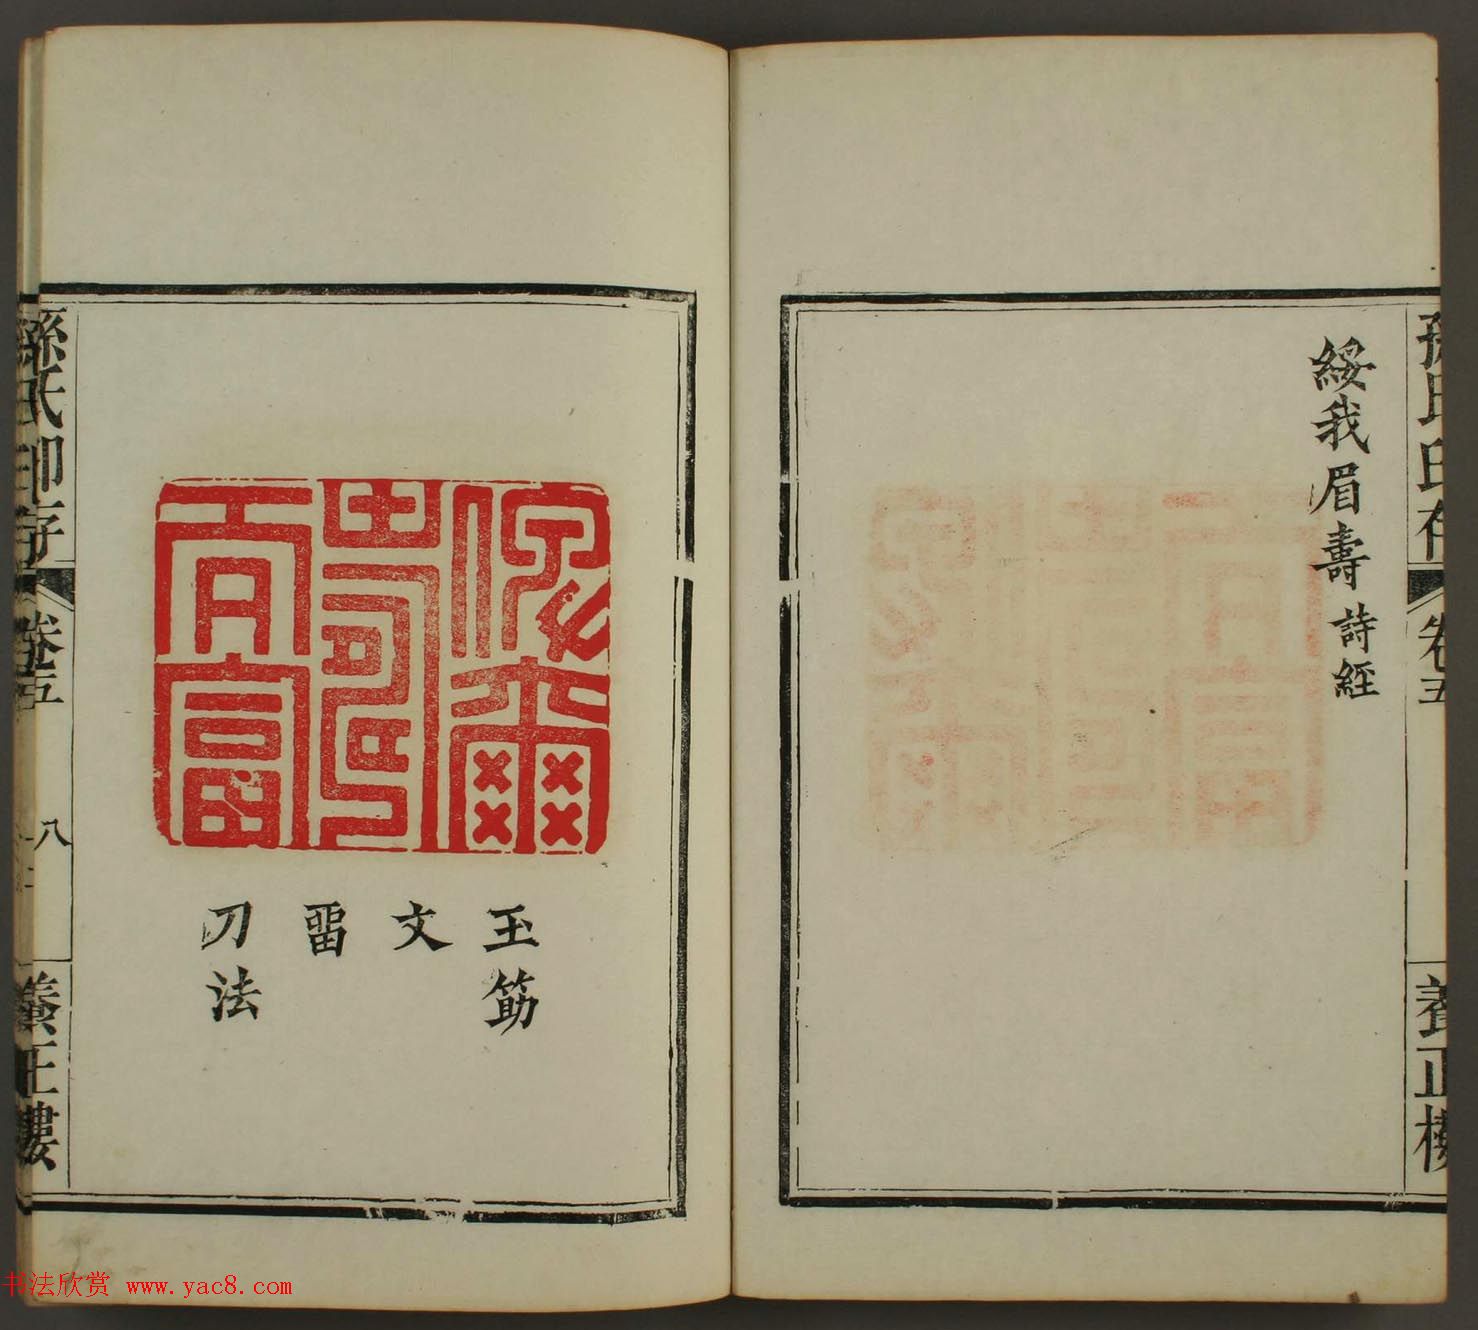 孫氏印存 卷五 養正樓
綏我眉壽 詩經
俾爾
壽
而富
玉筯
文
畱
刀法
孫氏印存 卷五 八 養正樓
书法欣赏 www.yac8.com